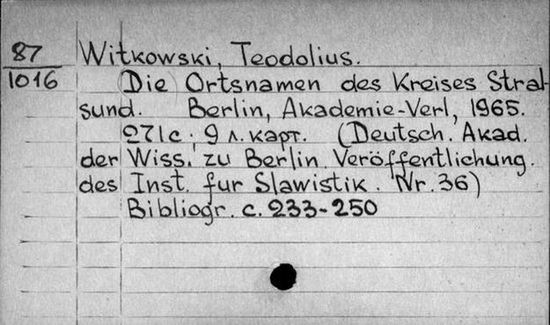 87 Witkowski, Teodolius.
1016 Die Ortsnamen des Kreises Stral-
sund. Berlin, Akademie-Verl, 1965.
271с; 9 л. карт. (Deutsch. Akad.
der Wiss. zu Berlin. Veröffentlichung.
des Inst. fur Slawistik. Nr. 36)
Bibliogr. с. 233-250